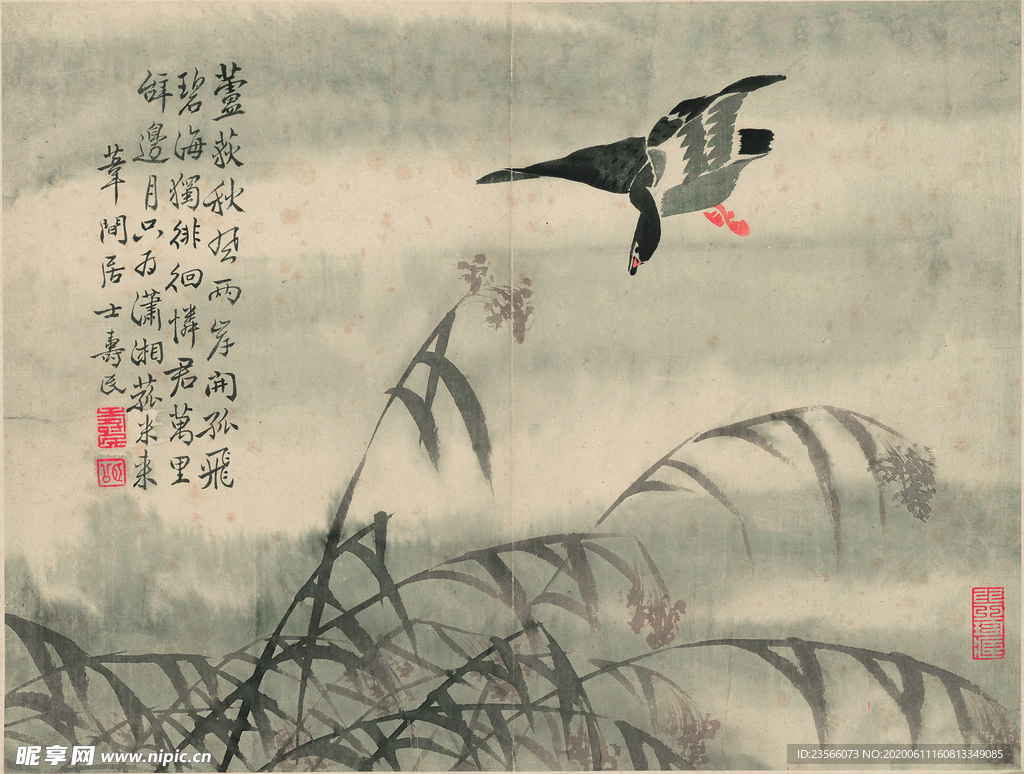 蘆荻秋花兩岸開孤飛
碧海獨徘徊憐君萬里
辭邊月只为瀟湘菰米来
葦間居士壽民
昵享网 www.nipic.cn
ID:23566073 NO:20200611160813349085